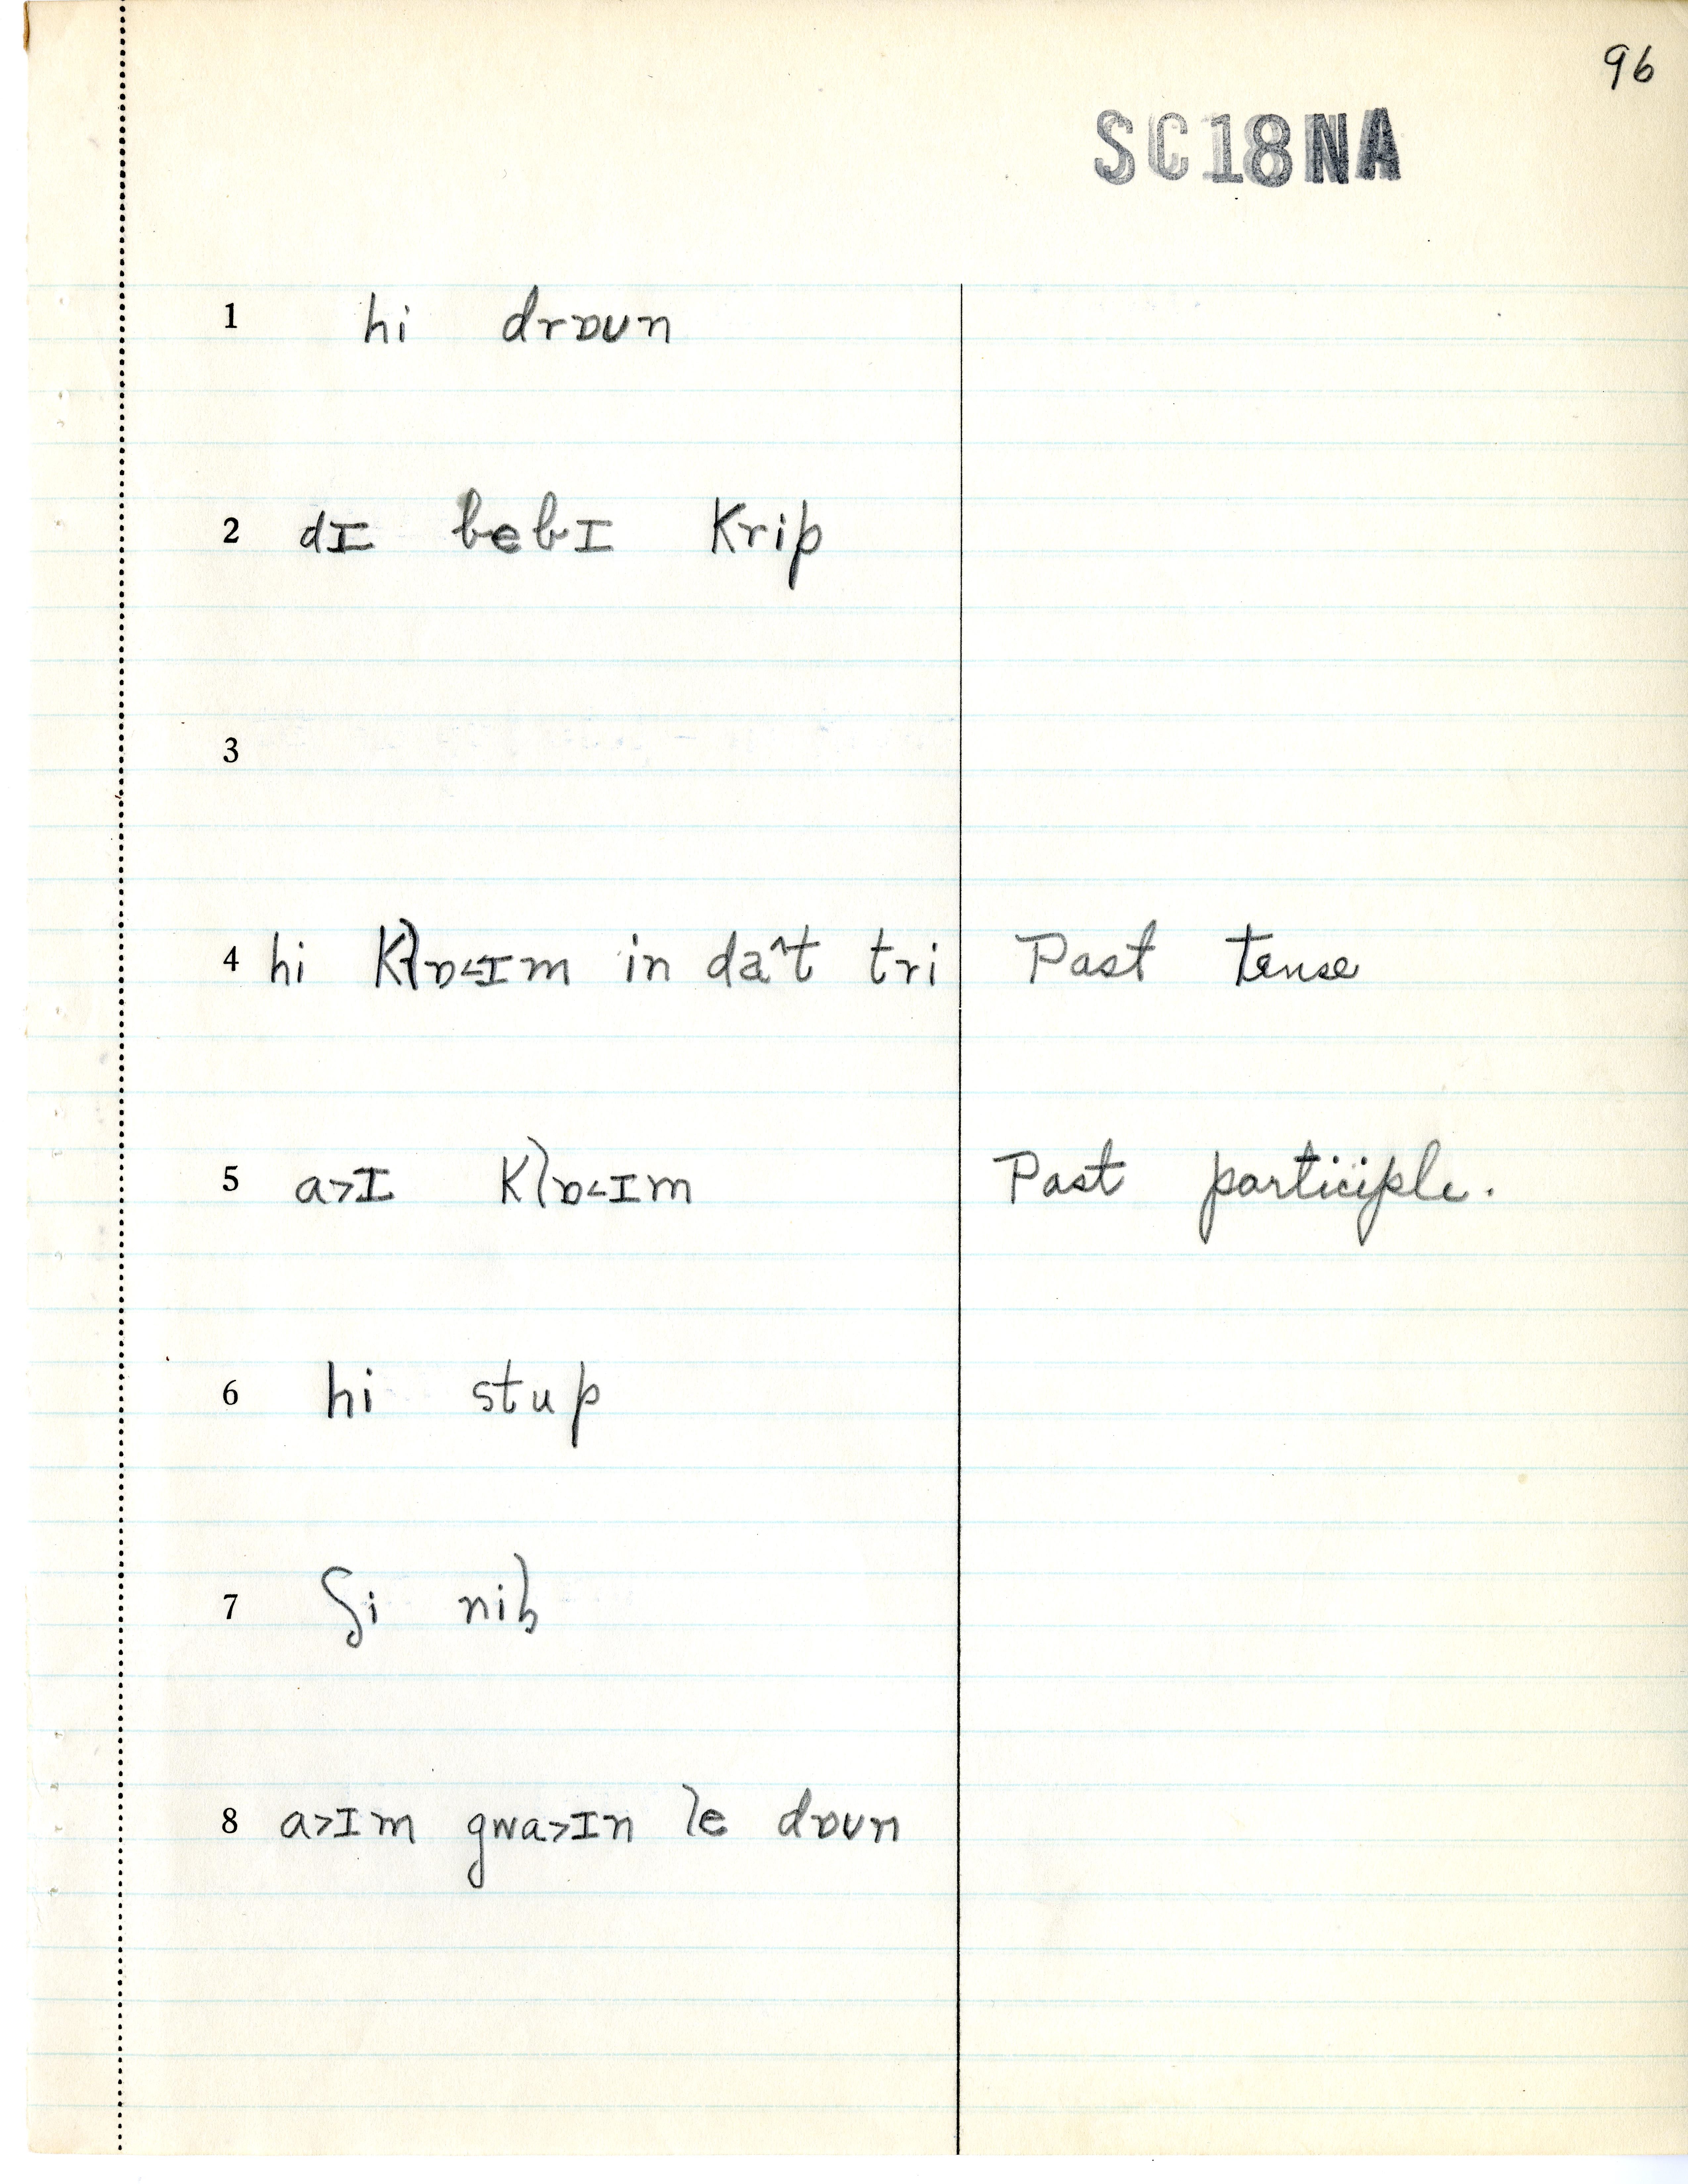 96
SC18NA
1 hi drɒʊn
2 dɪ bebɪ krip
3
4 hi klɒ˂ɪm in da^t tri Past tense
5 a˃ɪ klɒ˂ɪm Past participle.
6 hi stup
7 ʃi nil
8 a˃ɪm gwa˃ɪn le dɒʊn